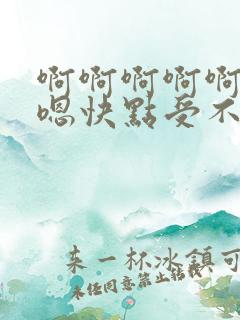 啊啊啊啊啊
嗯快點受不
来一杯冰鎮可
未经同意禁止转载